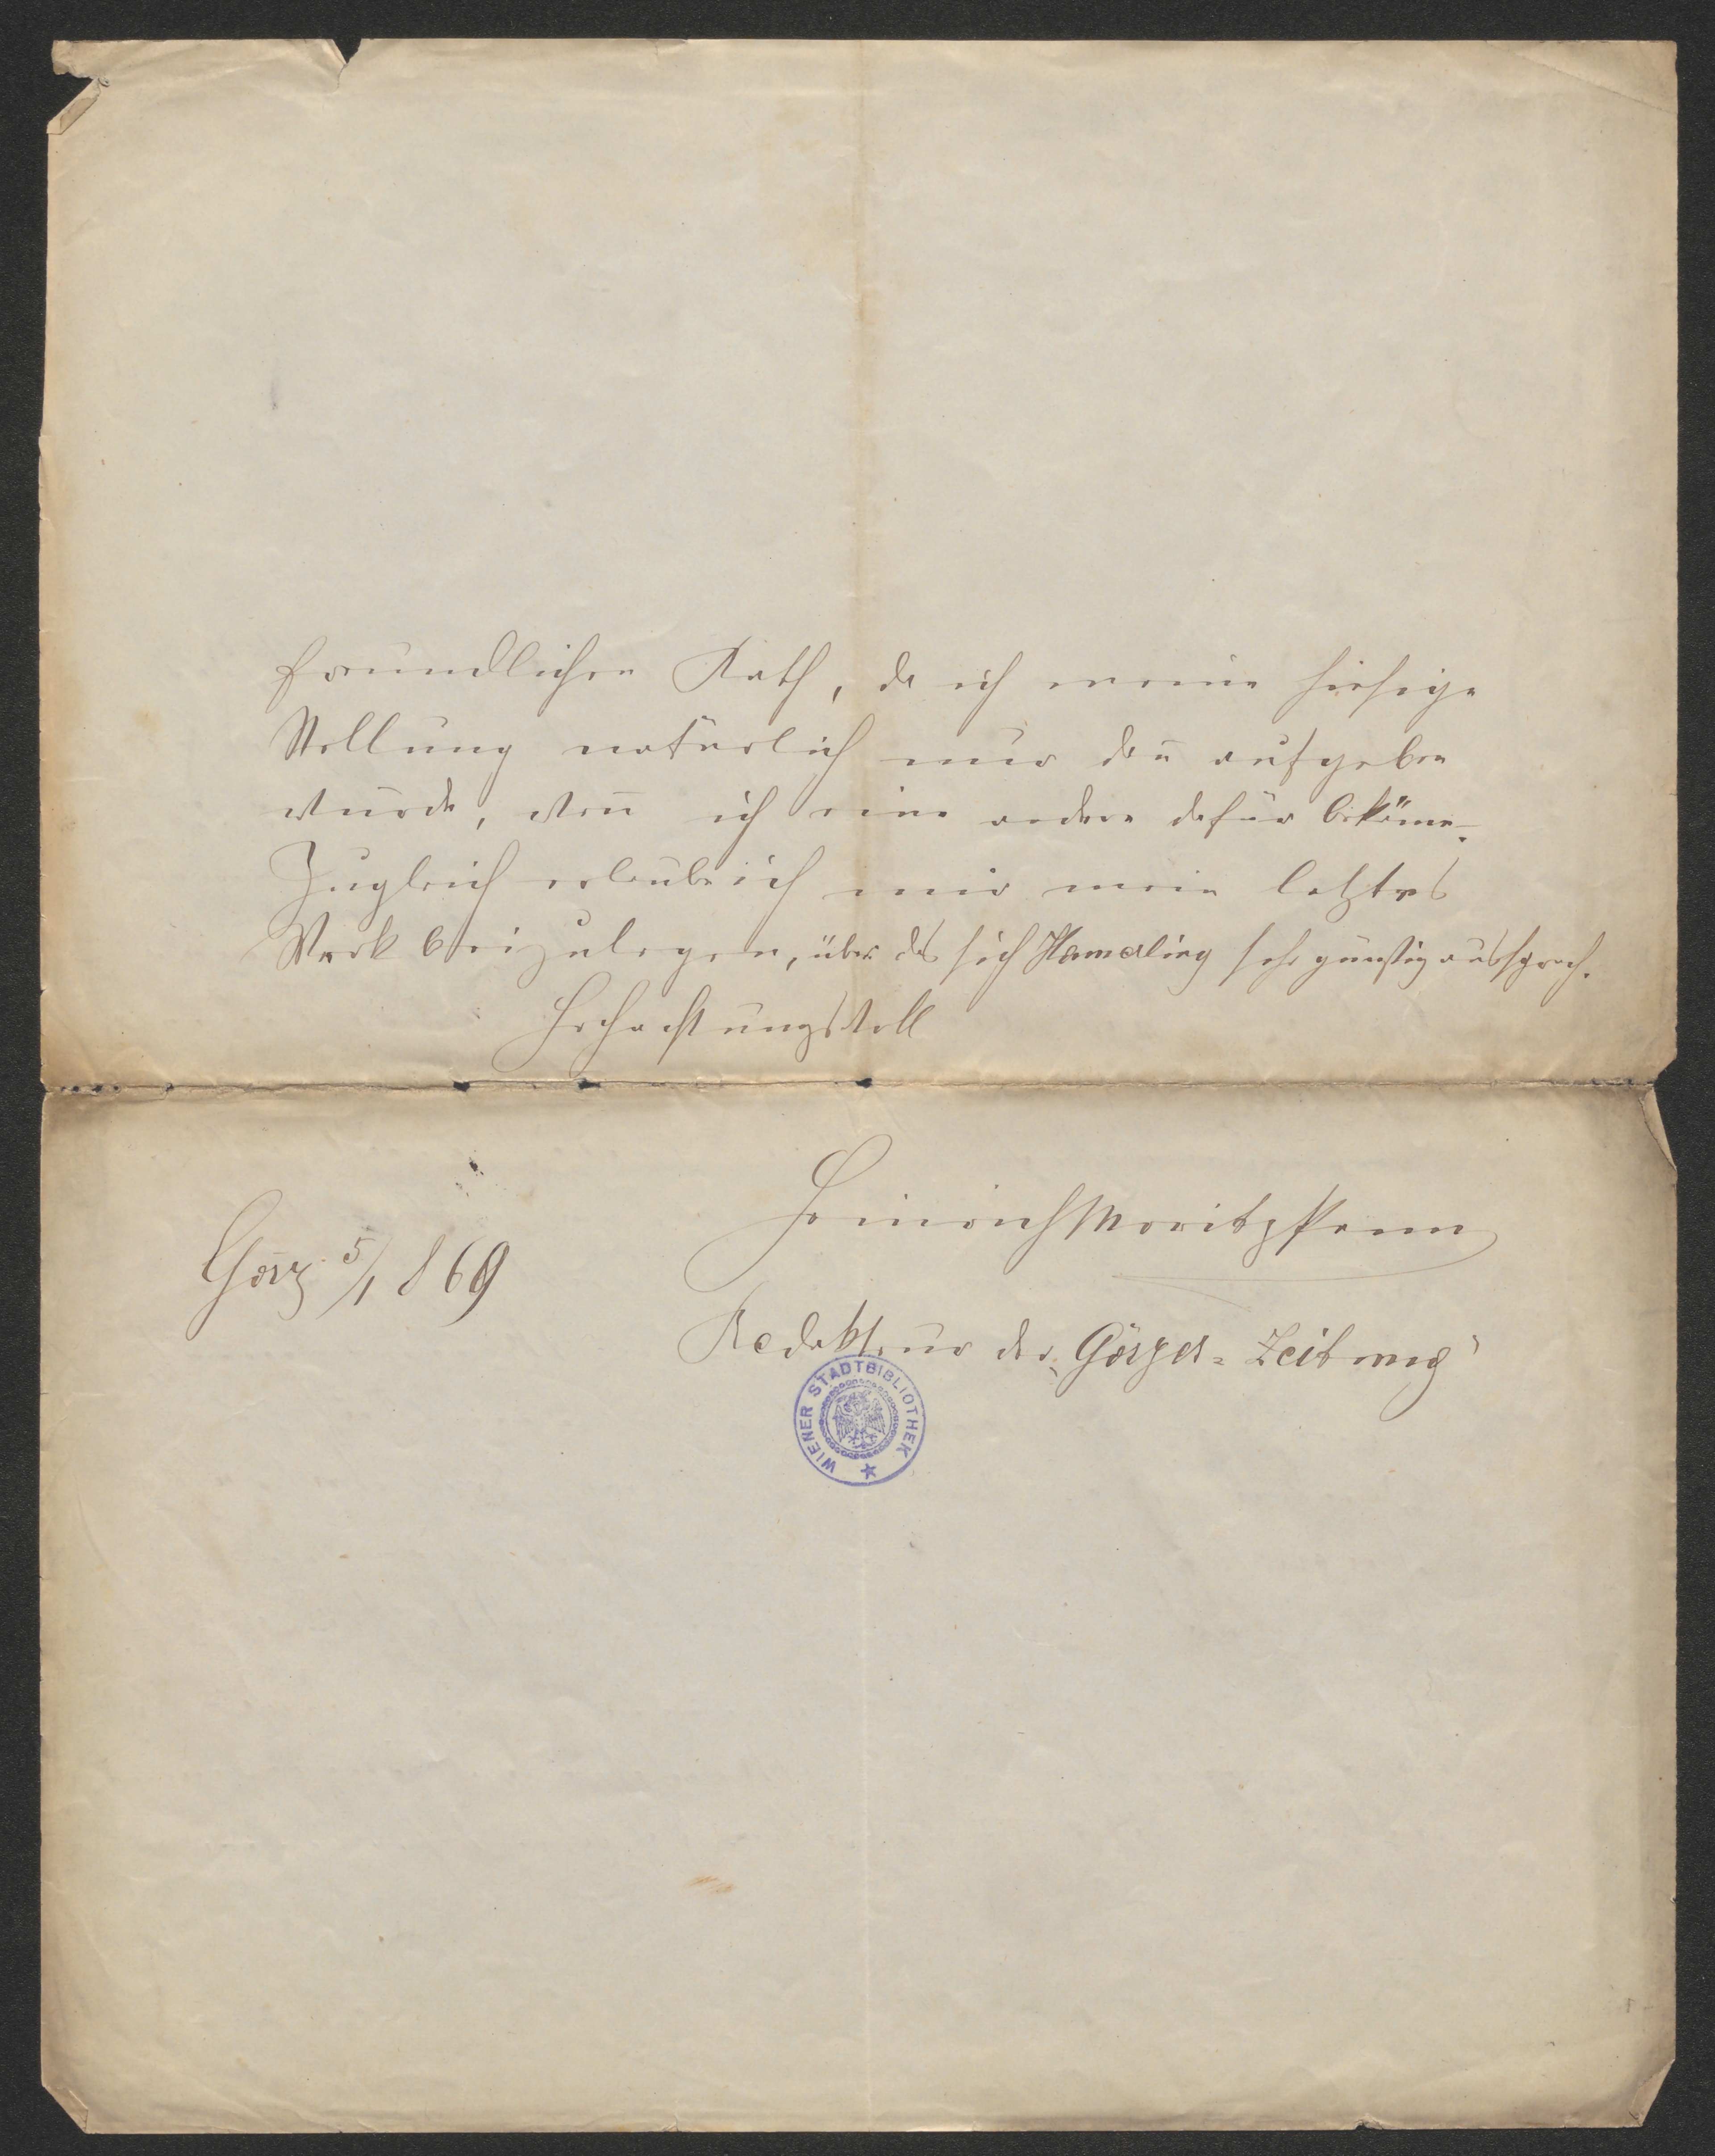 freundlichen Rath, da ich meine hiesige
Stellung natürlich nur dan̄ aufgeben
würde, wen̄ ich eine andere dafür bekäme.
Zugleich erlaube ich mir mein letztes
Werk beizulegen, über das sich Hamerling sehr günstig aussprach.
Hochachtungsvoll
Heinrich Moritz Penn
Görz 5/1 869
Redakteur der „Görzer-Zeitung"
WIENER STADTBIBLIOTHEK